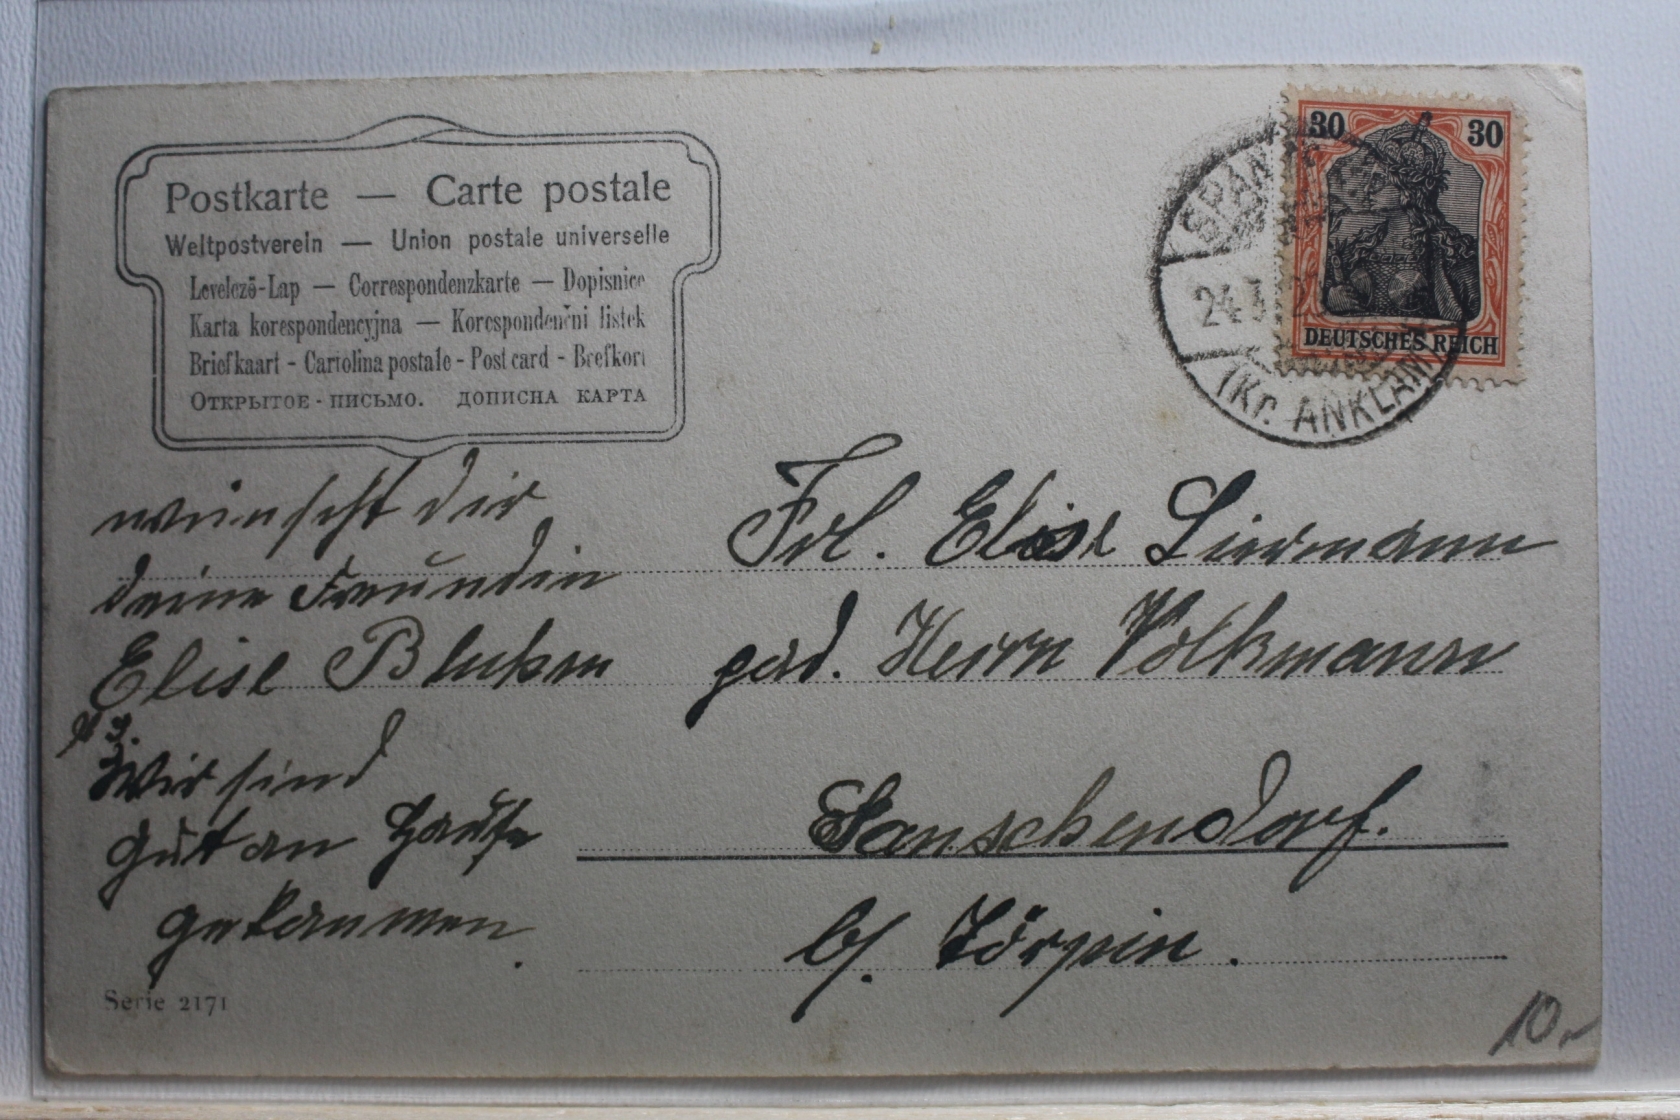 Postkarte — Carte postale
Weltpostverein — Union postale universelle
Levelező-Lap — Correspondenzkarte — Dopisnice
Karta korespondencyjna — Korespondenční lístek
Briefkaart - Cartolina postale - Post card - Brefkort
ОТКРЫТОЕ - ПИСЬМО. ДОПИСНА КАРТА
30 30
DEUTSCHES REICH
24.3.
(Kr. ANKLAM)
wünscht dir
deine Freundin
Elise
Wir sind
gut an Hause
gekommen.
Frl. Elise Liermann
Herrn Volkmann
b/.
Serie 2171
10,-